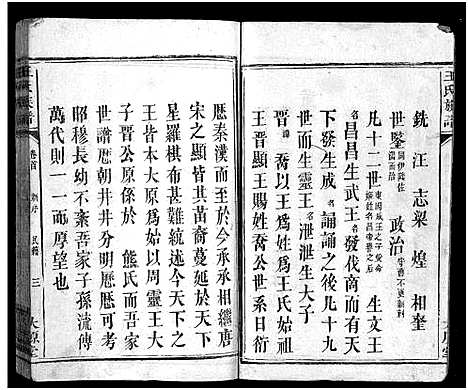 王氏族譜
銑汪志梁煌相奎
世鑒 政治
凡十二世 生文王
昌昌生武王 發伐商而有天
下發生成王 誦誦之後凡十九
世而生靈王 泄泄生大子
晉 喬以王爲姓爲王氏始祖
王晉王賜姓喬公世系衍
歷秦漢而至於今承承相繼唐
宋之顯皆其苗裔蔓延於天下
星羅棋布甚難統述今天下之
王皆大原爲始以周靈王大
子晉公原係於 熊氏而晉公
世譜歷朝井井分明歷歷可考
昭穆長幼不紊吾家子孫流傳
萬代則一一而厚望也
王氏族譜
卷首
三
大原堂